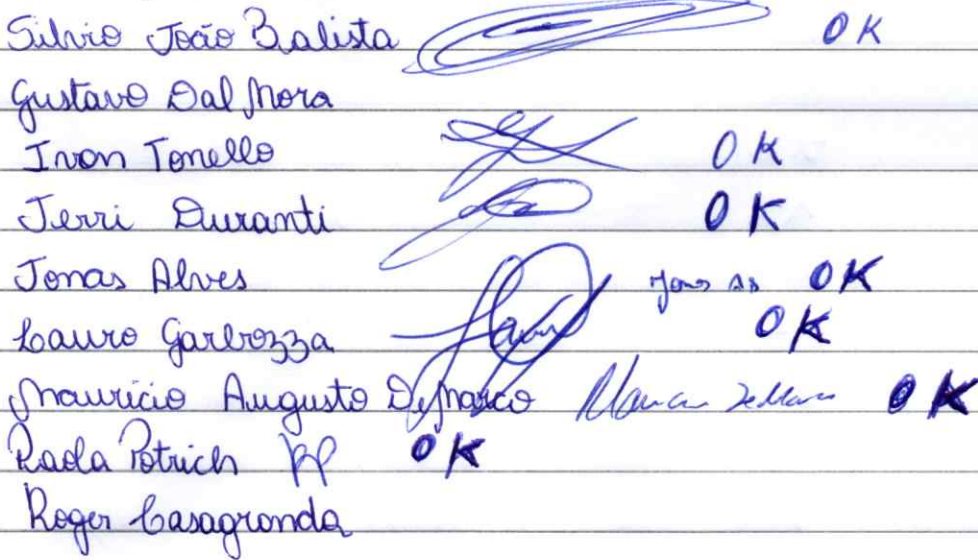 Silvio João Balista OK
Gustavo Dal Mora
Ivan Tonello OK
Jerri Duranti OK
Jonas Alves OK
Lauro Garbozza OK
Mauricio Augusto DeMarco OK
Paola Potrich PP OK
Roger Casagranda